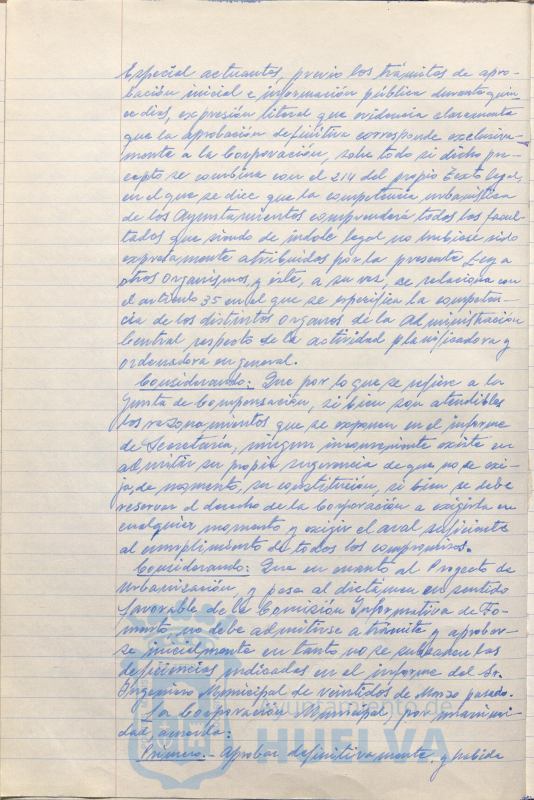 Especial actuantes, previo los trámites de apro-
bación inicial e información pública durante quin-
ce días, expresión literal que evidencia claramente
que la aprobación definitiva corresponde exclusiva-
mente a la Corporación, sobre todo si dicho pre-
cepto se combina con el 214 del propio Texto legal,
en el que se dice que la competencia urbanística
de los Ayuntamientos comprenderá todas las facul-
tades que siendo de índole legal no hubiesen sido
expresamente atribuidas por la presente Ley a
otros Organismos, y éste, a su vez, se relaciona con
el artículo 35 en el que se especifica la competen-
cia de los distintos órganos de la Administración
Central respecto de la actividad planificadora y
ordenadora en general.
Considerando: Que por lo que se refiere a la
Junta de Compensación, si bien son atendibles
los razonamientos que se exponen en el informe
de Secretaría, ningún inconveniente existe en
admitir su propia sugerencia de que no se exi-
ja, de momento, su constitución, si bien se debe
reservar el derecho de la Corporación a exigirla en
cualquier momento y exigir el aval suficiente
al cumplimiento de todos los compromisos.
Considerando: Que en cuanto al Proyecto de
Urbanización, y pese al dictámen en sentido
favorable de la Comisión Informativa de Fo-
mento, no debe admitirse a trámite y aprobar-
se inicialmente en tanto no se subsanen las
deficiencias indicadas en el informe del Sr.
Ingeniero Municipal de veintidós de Marzo pasado.
La Corporación Municipal, por unanimi-
dad, acuerda:
Primero.- Aprobar definitivamente, y habida
Ayuntamiento de
HUELVA